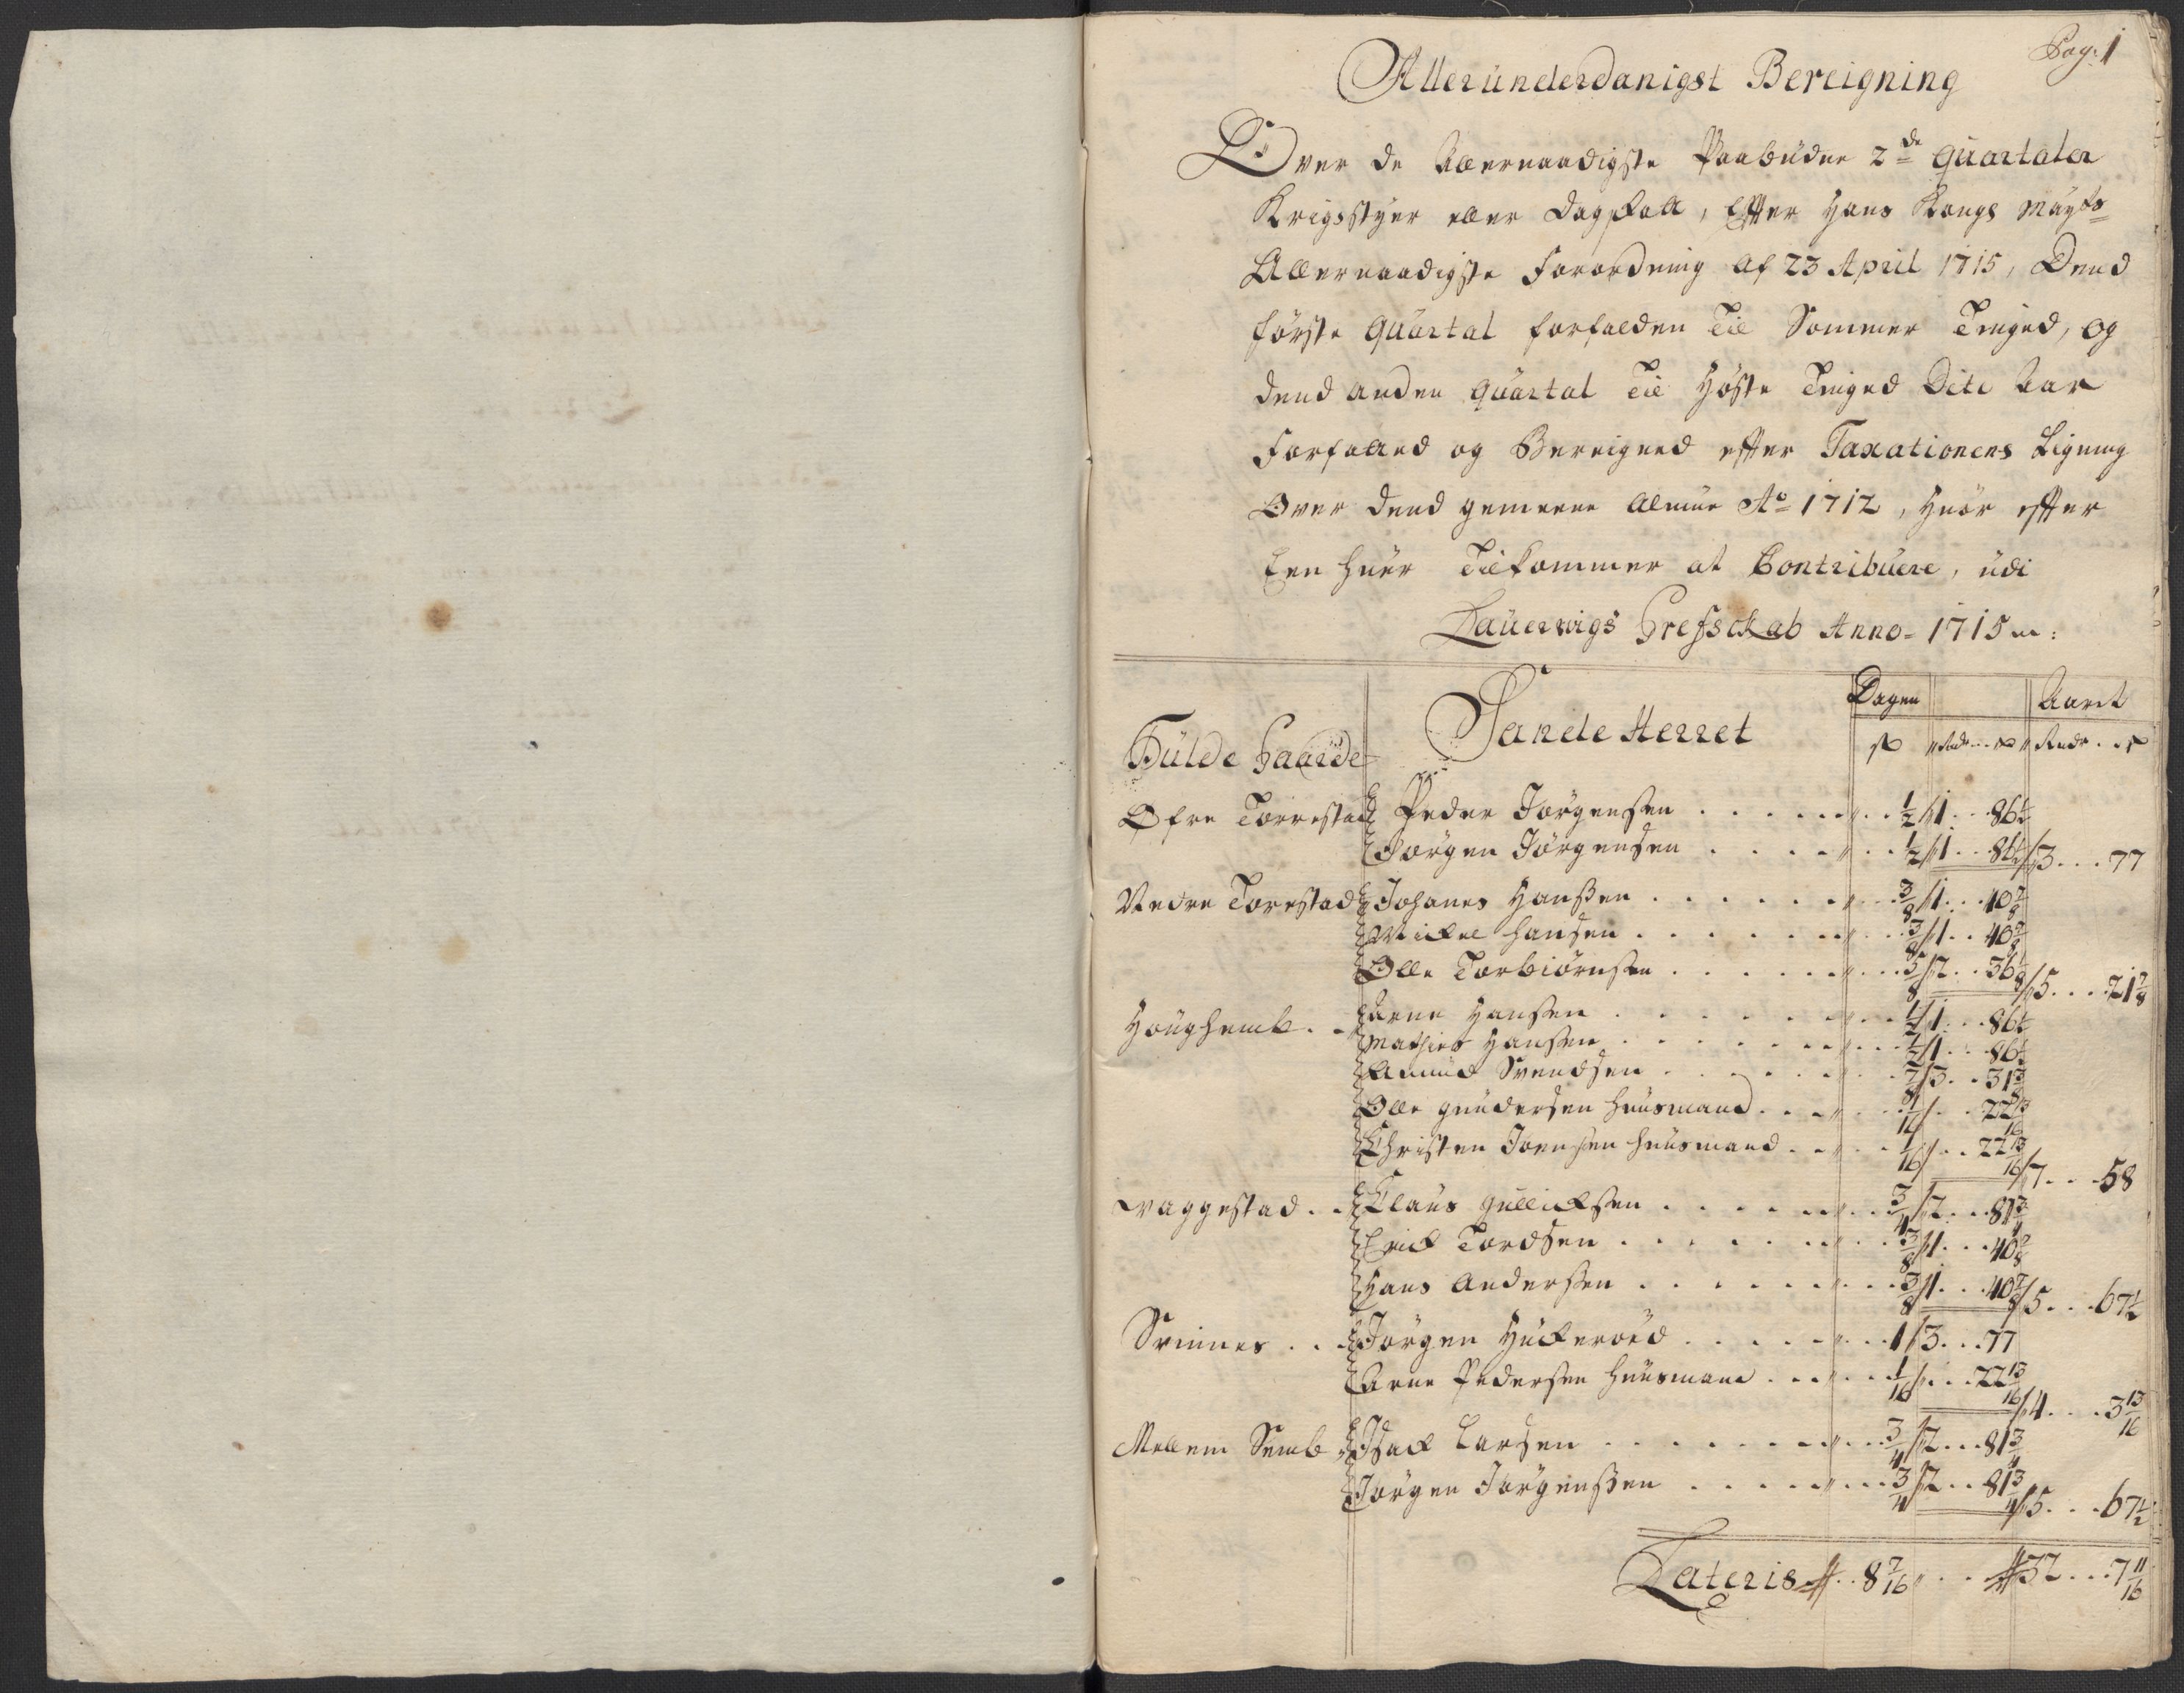 Pag: 1
Allerunderdanigst Bereigning
Over de Allernaadigste Paabudne 2de Quartaler
Krigsstyer eller Dagskatt, Effter Hans Kongs Mayts
Allernaadigste Forordning af 23 April 1715, Dend
første Quartal forfalden Til Sommer Tinged, og
dend anden Quartal Til Høste Tinged Dito Aar
Forfatted og Bereigned effter Taxationens Ligning
Over dend gemeene Almue Ao 1712, Huor effter
Een huer Tilkommer at Contribuere, udi
Lauerwigs Grefskab Anno 1715
Fulde Gaarde Sande Herret Dagen Aaret
Øfre Torrestad Peder Jørgensen 1/2 1 86 1/2
Jørgen Jørgensen 1/2 1 86 1/2 3 77
Nedre Torestad Johanes Hanssen 3/8 1 40 7/8
Mickel Hansen 3/8 1 40 7/8
Olle Torbiørnsen 5/8 2 36 1/8 5 21 7/8
Houghemb Arne Hansen 1/2 1 86 1/2
Mathies Hansen 1/2 1 86 1/2
Amund Svendsen 7/8 3 31 3/8
Olle gundersen huusmand 1/16 22 13/16
Christen Joensen huusmand 1/16 22 13/16 7 58
Waggestad Claus Gullicksen 3/4 2 81 3/4
Erick Tordsen 3/8 1 40 7/8
Hans Andersen 3/8 1 40 7/8 5 67 1/2
Svinnes Jørgen Huckeroed 1 3 77
Arne Pedersen huusmand 1/16 22 13/16 4 3 13/16
Mellem Semb Isack Larsen 3/4 2 81 3/4
Jørgen Jørgenssen 3/4 2 81 3/4 5 67 1/2
Lateris 8 7/16 32 7 11/16